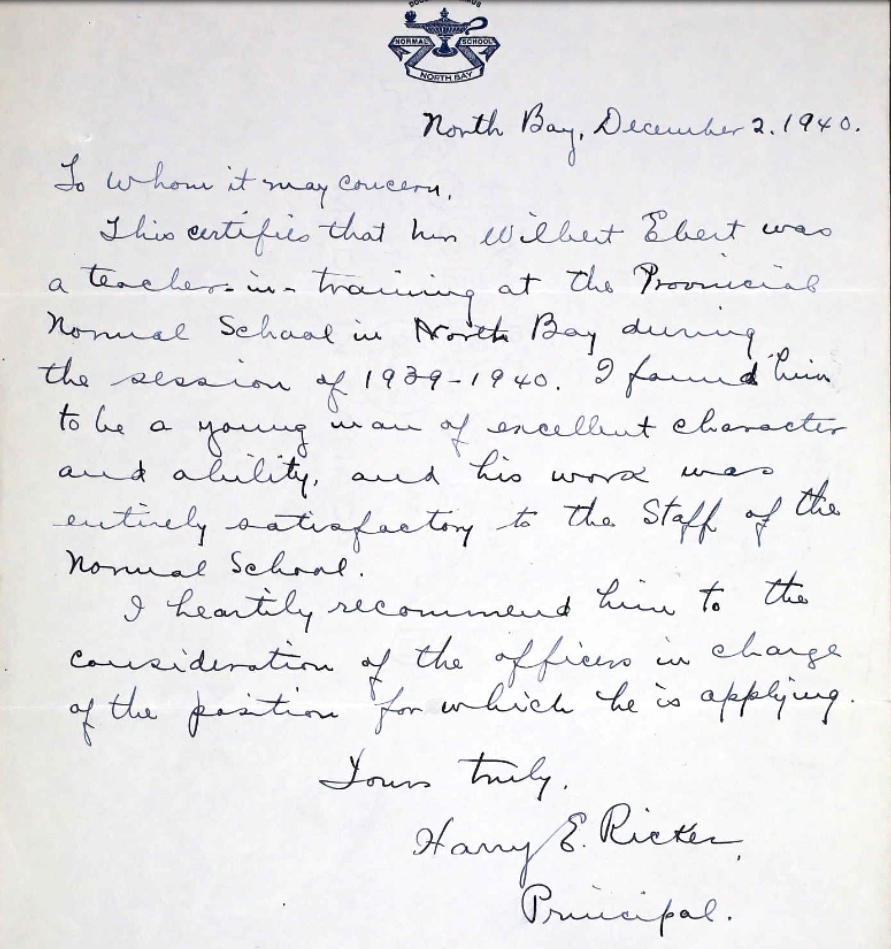 NORMAL SCHOOL
NORTH BAY
North Bay, December 2, 1940.
To whom it may concern,
This certifies that Wilbert Ebert was
a teacher-in-training at the Provincial
Normal School in North Bay during
the session of 1939-1940. I found him
to be a young man of excellent character
and ability, and his work was
entirely satisfactory to the Staff of the
Normal School.
I heartily recommend him to the
consideration of the officers in charge
of the position for which he is applying.
Yours truly,
Harry E. Ricker,
Principal.